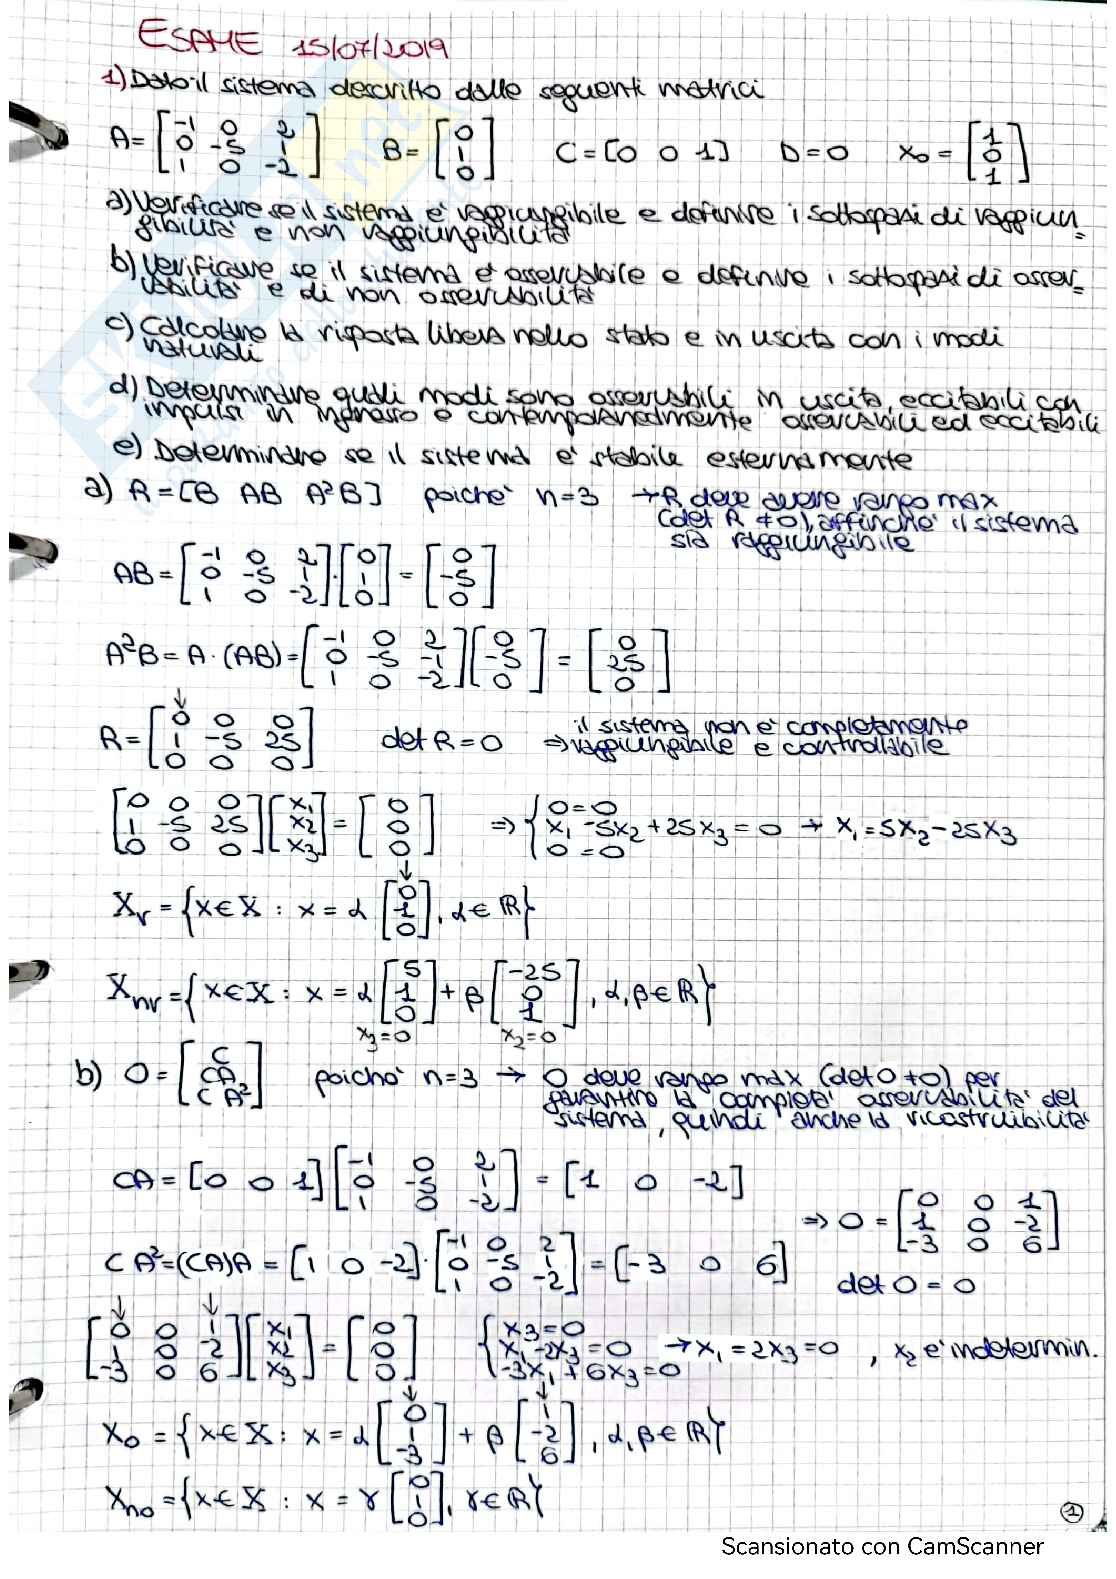 ESAME 15/07/2019
1) Dato il sistema descritto dalle seguenti matrici
A = [-1 0 2; 0 -5 1; 1 0 -2] B = [0; 1; 0] C = [0 0 1] D = 0 x₀ = [1; 0; 1]
a) Verificare se il sistema e' raggiungibile e definire i sottospazi di raggiun=
gibilita' e non raggiungibilita'
b) Verificare se il sistema e' osservabile e definire i sottospazi di osser=
vabilita' e di non osservabilita'
c) Calcolare la risposta libera nello stato e in uscita con i modi
naturali
d) Determinare quali modi sono osservabili in uscita, eccitabili con
impulsi in ingresso e contemporaneamente osservabili ed eccitabili
e) Determinare se il sistema e' stabile esternamente
a) R = [B AB A²B] poiche' n=3 → R deve avere rango max
(det R ≠ 0), affinche' il sistema
sia raggiungibile
AB = [-1 0 2; 0 -5 1; 1 0 -2] · [0; 1; 0] = [0; -5; 0]
A²B = A·(AB) = [-1 0 2; 0 -5 -1; 1 0 -2] [0; -5; 0] = [0; 25; 0]
R = [0 0 0; 1 -5 25; 0 0 0] det R = 0 ⇒ il sistema non e' completamente
raggiungibile e controllabile
[0 0 0; 1 -5 25; 0 0 0] [x₁; x₂; x₃] = [0; 0; 0] ⇒ { 0=0; x₁ -5x₂ + 25x₃ = 0; 0=0 → x₁ = 5x₂ - 25x₃
Xr = {x∈X : x = α [0; 1; 0], α∈ℝ}
Xnr = {x∈X : x = α [5; 1; 0] + β [-25; 0; 1], α, β∈ℝ}
x₃=0 x₂=0
b) O = [C; CA; CA²] poiche' n=3 → O deve rango max (det O ≠ 0) per
garantire la completa osservabilita' del
sistema, quindi anche la ricostruibilita'
CA = [0 0 1] [-1 0 2; 0 -5 1; 1 0 -2] = [1 0 -2]
⇒ O = [0 0 1; 1 0 -2; -3 0 6]
CA² = (CA)A = [1 0 -2] · [-1 0 2; 0 -5 1; 1 0 -2] = [-3 0 6]
det O = 0
[0 0 1; 1 0 -2; -3 0 6] [x₁; x₂; x₃] = [0; 0; 0] { x₃=0; x₁-2x₃=0; -3x₁+6x₃=0 → x₁ = 2x₃ = 0, x₂ e' indetermin.
Xo = {x∈X : x = α [0; 1; -3] + β [1; -2; 6], α, β∈ℝ}
Xno = {x∈X : x = γ [0; 1; 0], γ∈ℝ}
1
Scansionato con CamScanner